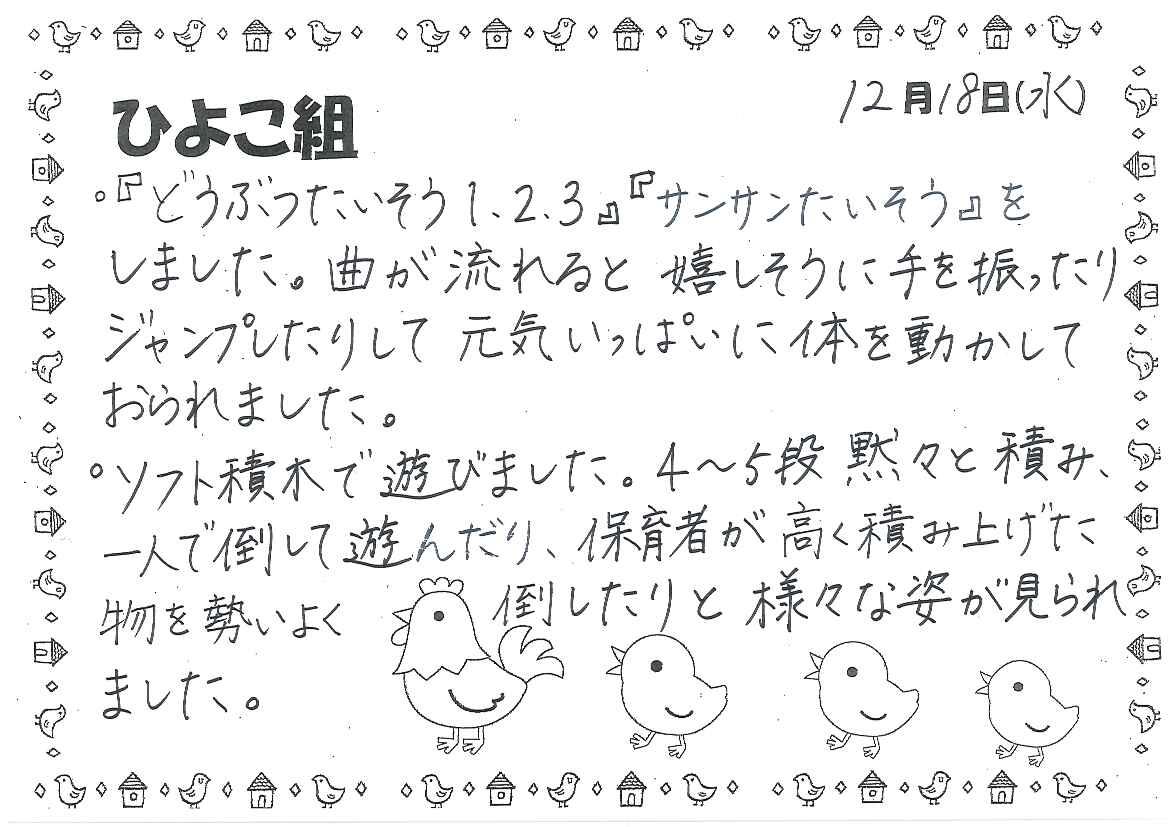 12月18日(水)
ひよこ組
。『どうぶつたいそう1.2.3』『サンサンたいそう』を
しました。曲が流れると嬉しそうに手を振ったり
ジャンプしたりして元気いっぱいに体を動かして
おられました。
。ソフト積木で遊びました。4〜5段黙々と積み、
一人で倒して遊んだり、保育者が高く積み上げた
物を勢いよく倒したりと様々な姿が見られ
ました。